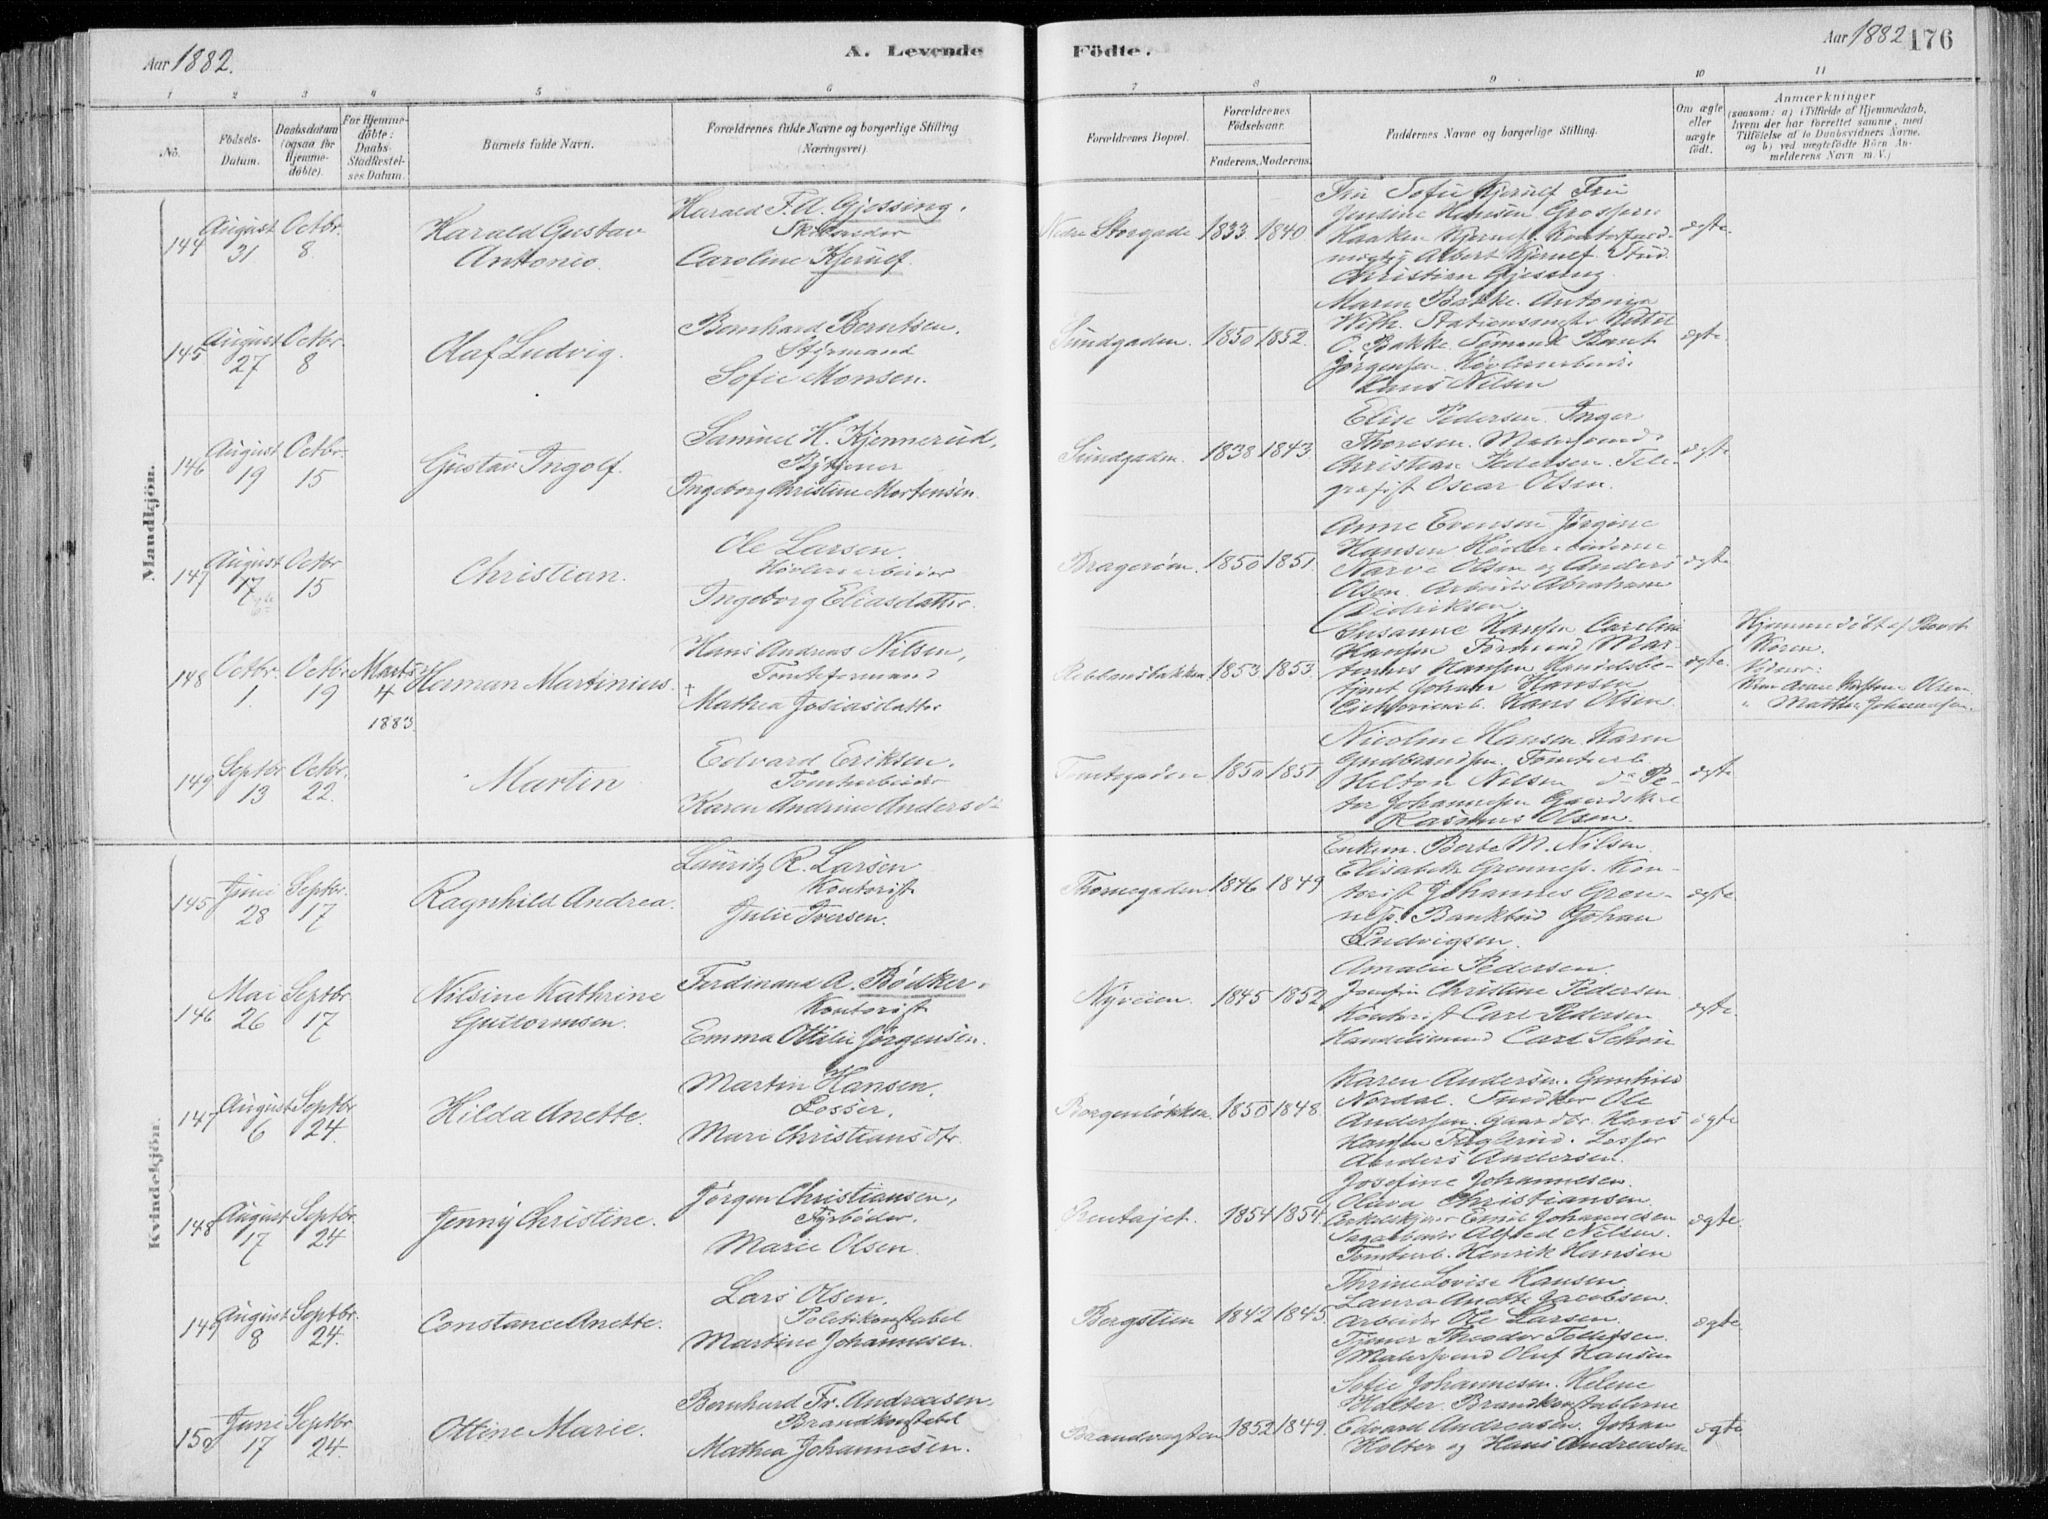 Aar 1882.
A. Levende Födte.
Aar 1882 176
1 2 3 4 5 6 7 8 9 10 11
No.
Födsels-Datum.
Daabsdatum (ogsaa for Hjemme-døbte).
For Hjemme-döbte: Daabs-Stadfæstel-ses Datum.
Barnets fulde Navn.
Forældrenes fulde Navne og borgerlige Stilling (Næringsvei).
Forældrenes Bopæl.
Forældrenes Födselsaar.
Faderens. Moderens.
Faddernes Navne og borgerlige Stilling.
Om ægte eller uægte født.
Anmærkninger
(saasom: a) i Tilfælde af Hjemmedaab, hvem der har forrettet samme, med Tilföielse af to Daabsvidners Navne, og b) ved uægtefödte Börn An-melderens Navn m. V.)
Mandkjön.
144 August 31 Octbr. 8.
Harald Gustav Antonio.
Harald F. A. Gjessing.
Caroline Kjerulf.
Nedre Storgade 1833. 1840
Fru Sofie Kjerulf Fru
Jensine Hansen Grosserer
Haaken Kjerulf. Kontorfuld-
mægtig Albert Kjerulf. Stud.
Christian Gjessing.
ægte.
145 August 27 Octbr. 8
Olaf Ludvig.
Bernhard Berntsen.
Styrmand
Sofie Monsen.
Sundgaden. 1850 1852.
Maren Bakke. Antonia
With. Stationsmester Kittil
O. Bakke. Sømand Bernt
Jørgensen. Høvleriarbeider
Hans Nilsen
ægte.
146 August 19 Octbr. 15
Gustav Ingolf.
Samuel H. Kjennerud,
Bytjener
Ingeborg Christine Mortensen.
Sundgaden. 1838 1843.
Elise Pedersen. Inger
Thoresen. Malersvend
Christian Pedersen. Tele-
grafist Oscar Olsen.
ægte
147 August 17 Octbr 15
Christian.
Ole Larsen.
Høvleriarbeider
Ingeborg Eliasdatter.
Bragerøen. 1850 1851.
Anne Evensen Jørgine
Hansen Høvleriarbeiderne
Narve Olsen og Anders
Olsen. Arbeider Abraham
Didriksen.
ægte
148 Octbr. 1. Octbr 19 Marts 4 1883.
Herman Martinius.
Hans Andreas Nilsen,
Tomteformand
† Mathea Josiasdatter
Rebbansbakken. 1853. 1853.
Susanne Hansen Caroline
Hansen Formand Mar-
tinius Hansen Handelsbe-
tjent Johan Hansen
Hans Olsen.
ægte.
Hjemmedøbt af Provst
Koren.
Vidner:
Olsen.
" Mathea Johannesen.
149 Septbr 13 Octbr. 22.
Martin
Edvard Eriksen.
Tomtearbeider
Karen Andrine Andersd
Tomtegaden 1850 1851
Nicoline Hansen Karen
Gudbrandsen. Tomtearb.
Helton Nilsen do Pe-
ter Johannesen Gaardskarl
Rasmus Olsen.
ægte
Kvindekjön.
145 Juni 28 Septbr. 17
Ragnhild Andrea.
Lauritz R. Larsen
Kontorist
Julie Iversen.
Thornegaden 1846 1849
Enkem. Berte M. Nilsen.
Elisabeth Grennes. Kon-
torist Johannes Gren-
nes. Bankbud Johan
Ludvigsen.
ægte
146 Mai 26 Septbr 17
Nilsine Kathrine Guttormsen.
Ferdinand A. Bødker.
Kontorist
Emma Ottilie Jørgensen.
Nyveien. 1845 1852
Amalie Pedersen.
Josefin Christine Pedersen
Kontorist Carl Pedersen
Handelsmand Carl Schou
ægte.
147 August 6 Septbr 24.
Hilda Anette.
Martin Hansen.
Losser.
Mari Christiansdtr.
Borgenløkken. 1850 1848.
Karen Andersen. Gunhild
Nordal. Snedker Ole
Andersen. Gaardbr. Hans
Hansen Fuglerud. Losser
Anders Andersen.
ægte
148 August 17 Septbr. 24
Jenny Christine.
Jørgen Christiansen,
Fyrbøder.
Marie Olsen.
1854 1854.
Josefine Johannesen.
Olava Christiansen.
Emil Johannesen
Sagarbeider Alfred Nilsen.
Tomtearb. Henrik Hansen
ægte.
149 August 8 Septbr. 24.
Constance Anette.
Lars Olsen.
Politikonstabel
Martine Johannesen.
Bergstien 1842 1845.
Thrine Lovise Hansen.
Laura Anette Jacobsen.
Arbeider Ole Larsen.
Tjener Theodor Tollefsen.
Malersvend Oluf Hansen
ægte.
150 Juni 17 Septbr. 24.
Ottine Marie.
Bernhard Fr. Andreasen.
Brandkonstabel
Mathea Johannesen.
Brandvagten 1852 1849.
Sofie Johannesen. Helene
Holter. Brandkonstablerne
Edvard Andreasen, Johan
Holter og Hans Andreasen
ægte